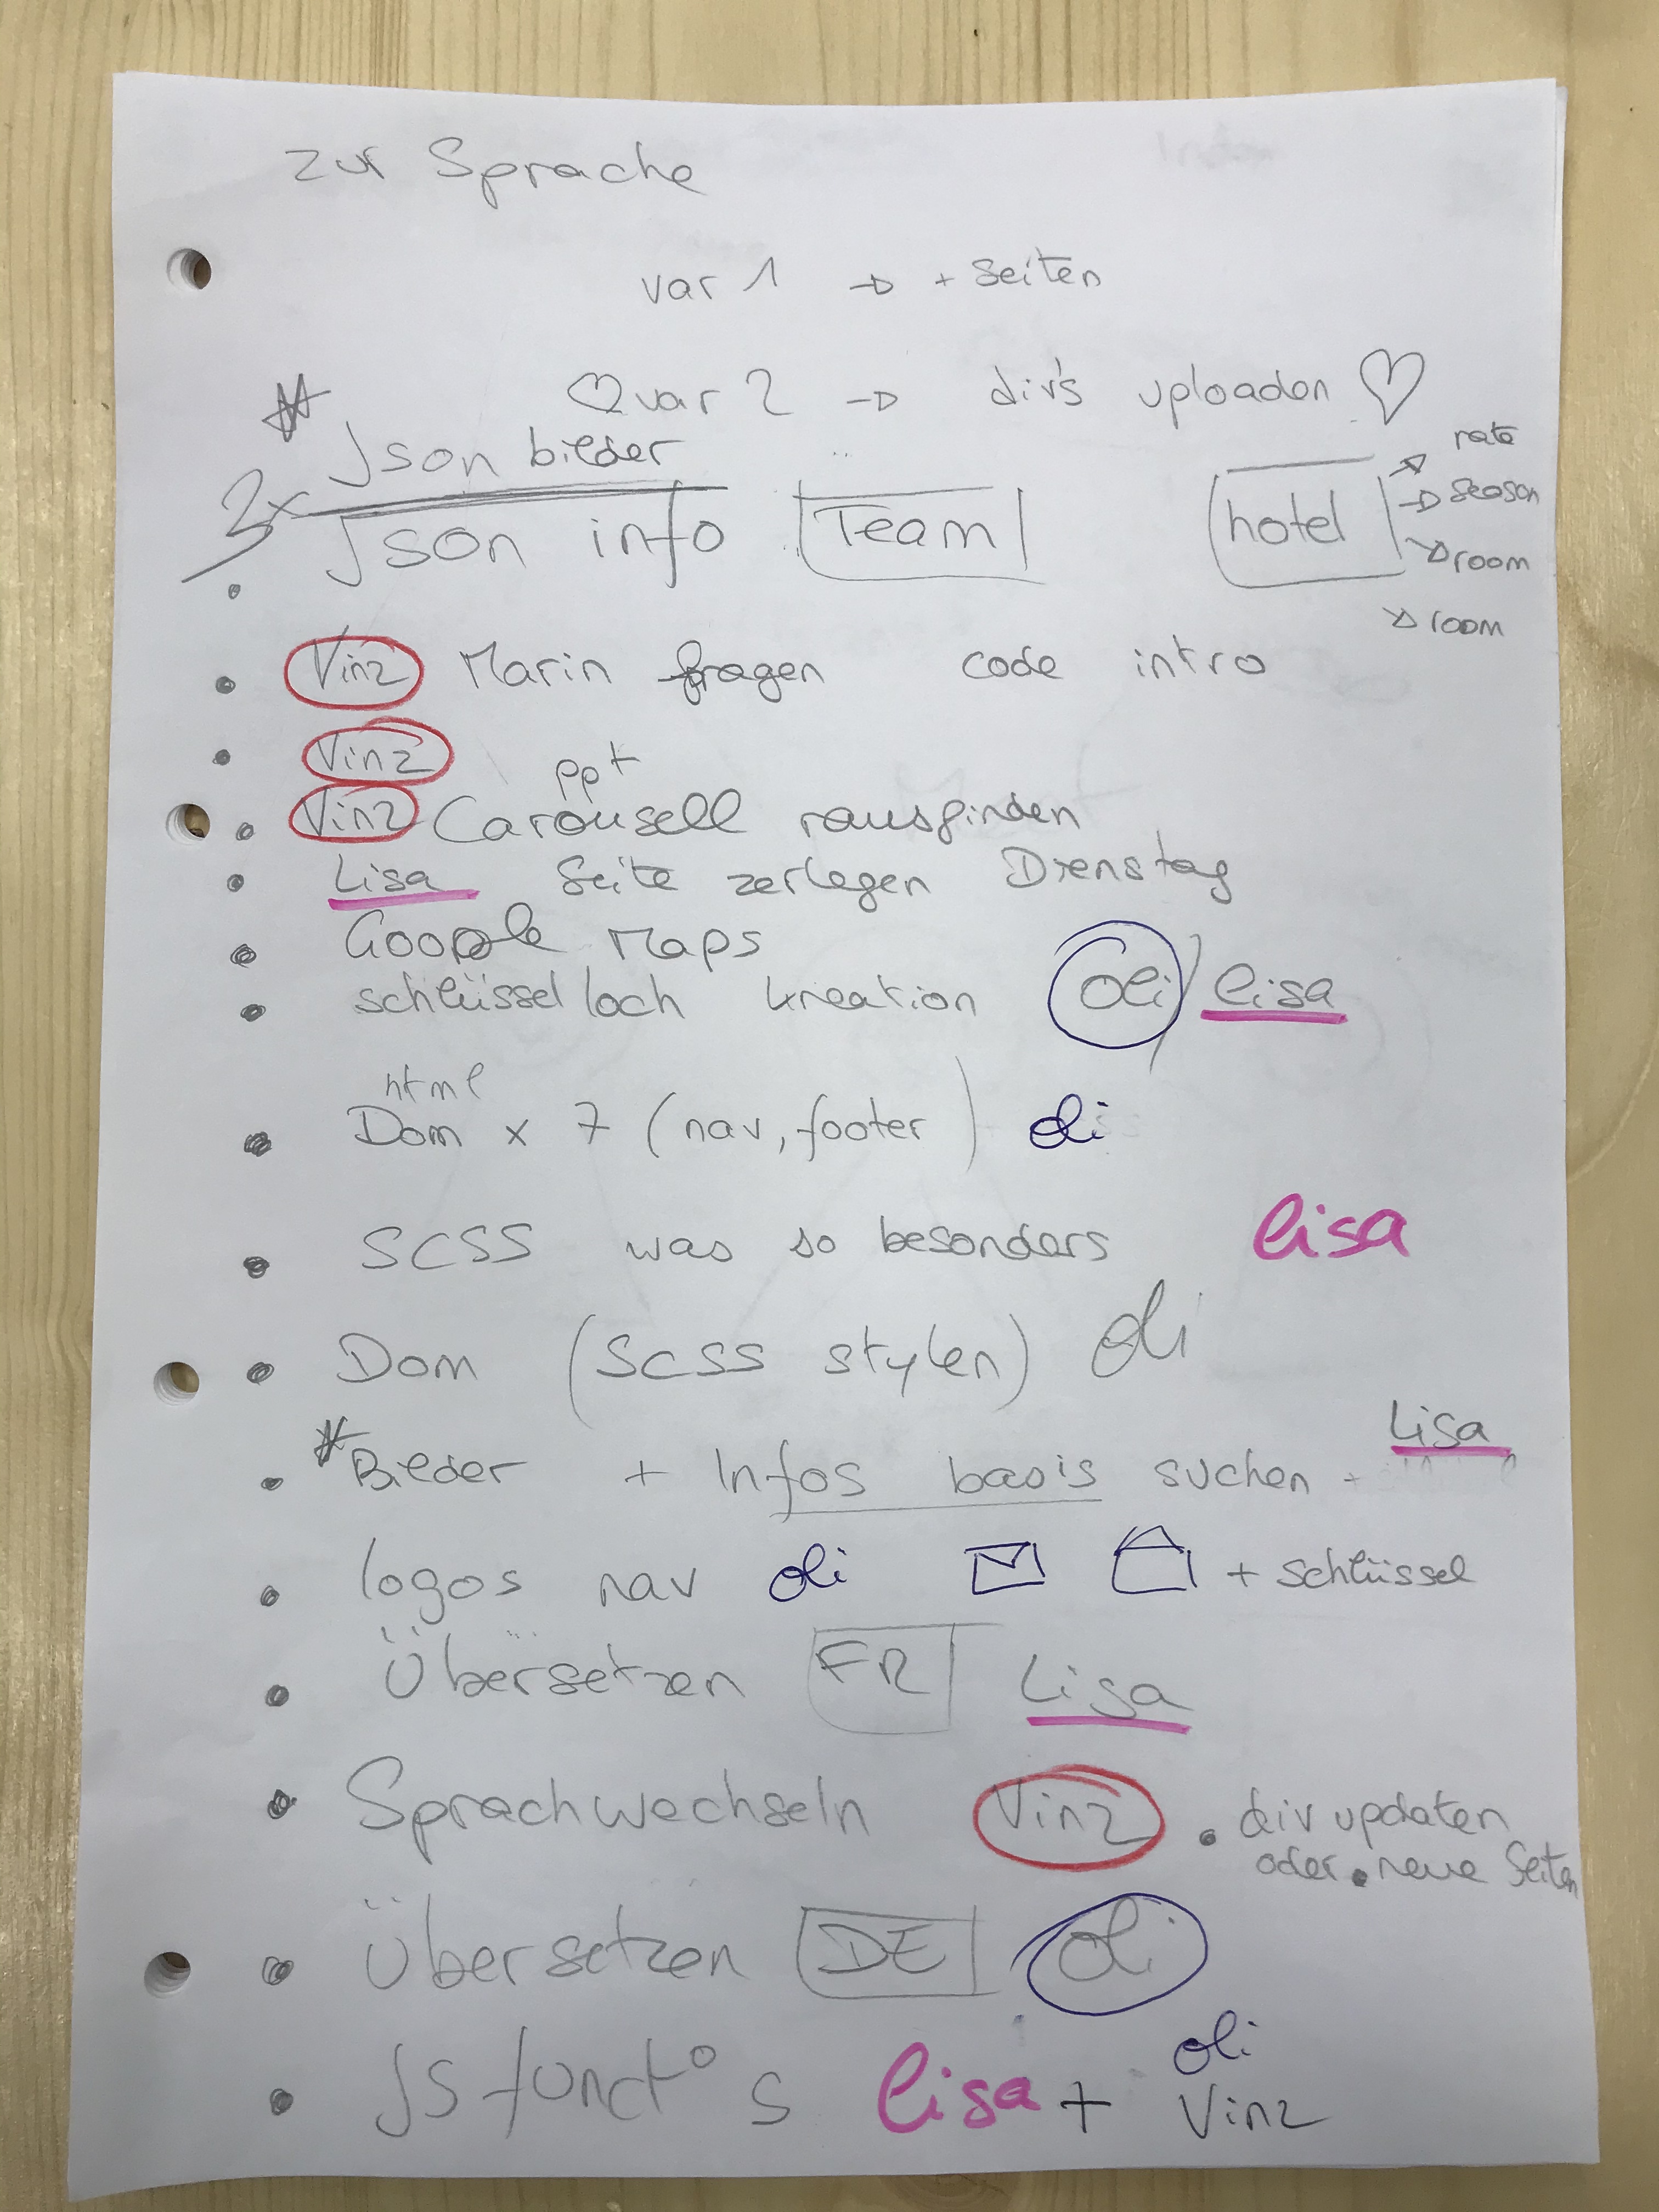 zur Sprache
var 1 → + Seiten
♡ var 2 → div's uploaden ♡
* Json bilder
3x Json info Team hotel → rate → season → room
→ room
• Vinz Marin fragen code intro
• Vinz ppt
• Vinz Carousell rausfinden
• Lisa Seite zerlegen Dienstag
• Google Maps
• schlüsselloch kreation Oli / Lisa
html
• Dom x 7 (nav, footer) Oli
• SCSS was so besonders Lisa
• Dom (SCSS stylen) Oli
• * Bilder + Infos basis suchen Lisa
• logos nav Oli + Schlüssel
• Übersetzen FR Lisa
• Sprachwechseln Vinz • div updaten
oder • neue Seiten
• Übersetzen DE Oli
• JS funct° s Lisa + Oli
Vinz